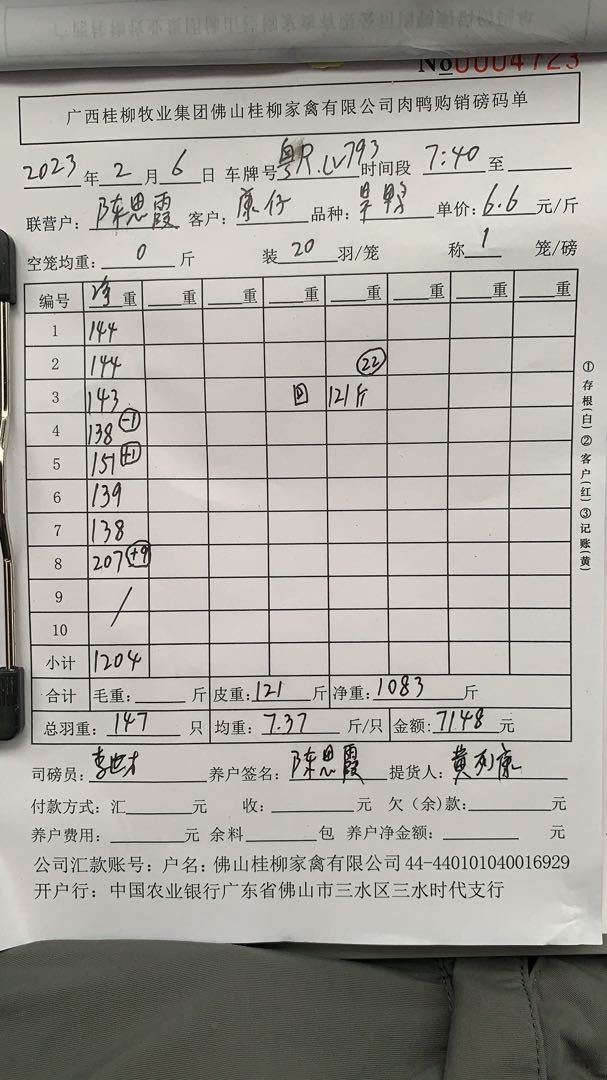 No0004723
广西桂柳牧业集团佛山桂柳家禽有限公司肉鸭购销磅码单
2023年2月6日 车牌号粤R.LV793时间段7:40至
联营户:陈思霞 客户:康仔 品种:单价:6.6元/斤
空笼均重:0斤 装20羽/笼 称1笼/磅
编号 净重 重 重 重 重 重 重 重
1 144
2 144 22
3 143 回 121斤
4 138 -1
5 151 +1
6 139
7 138
8 207 +9
9 /
10
小计 1204
合计 毛重:斤 皮重:121斤 净重:1083斤
总羽重:147只 均重:7.37斤/只 金额:7148元
司磅员: 养户签名:陈思霞 提货人:黄列康
付款方式:汇元 收:元 欠(余)款:元
养户费用:元 余料包 养户净金额:元
公司汇款账号:户名:佛山桂柳家禽有限公司44-440101040016929
开户行:中国农业银行广东省佛山市三水区三水时代支行
①存根(白)②客户(红)③记账(黄)